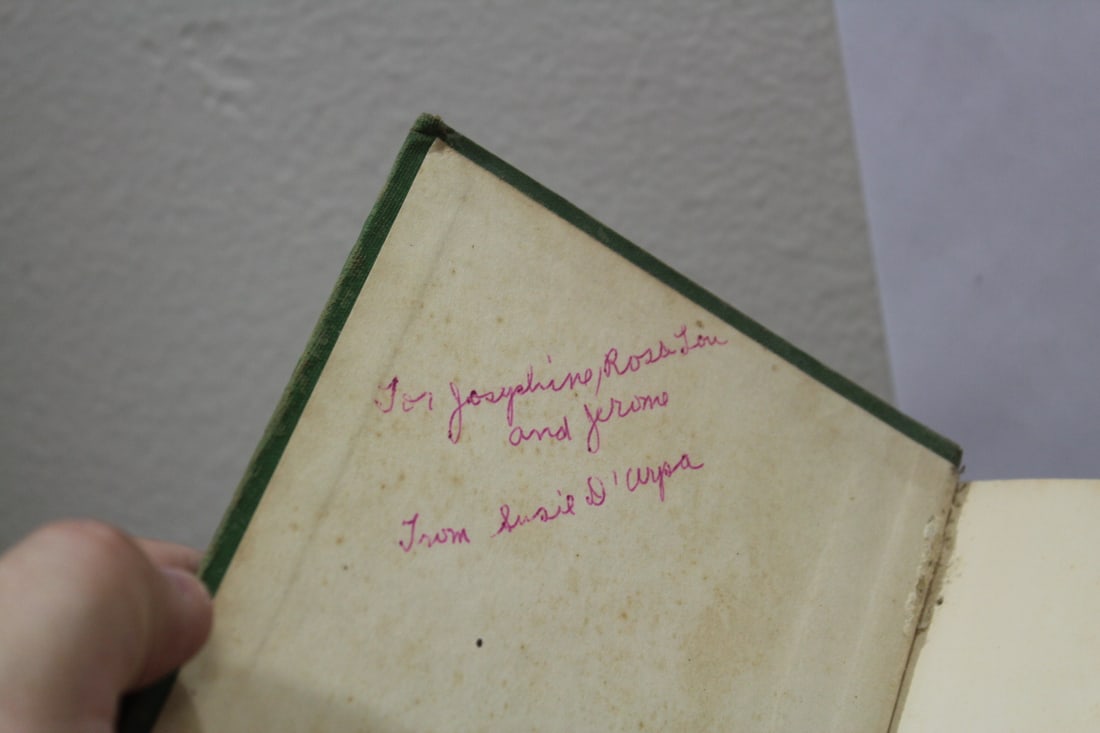 For Josephine, Rosa Lou
and Jerome
From Susie D'Arpa